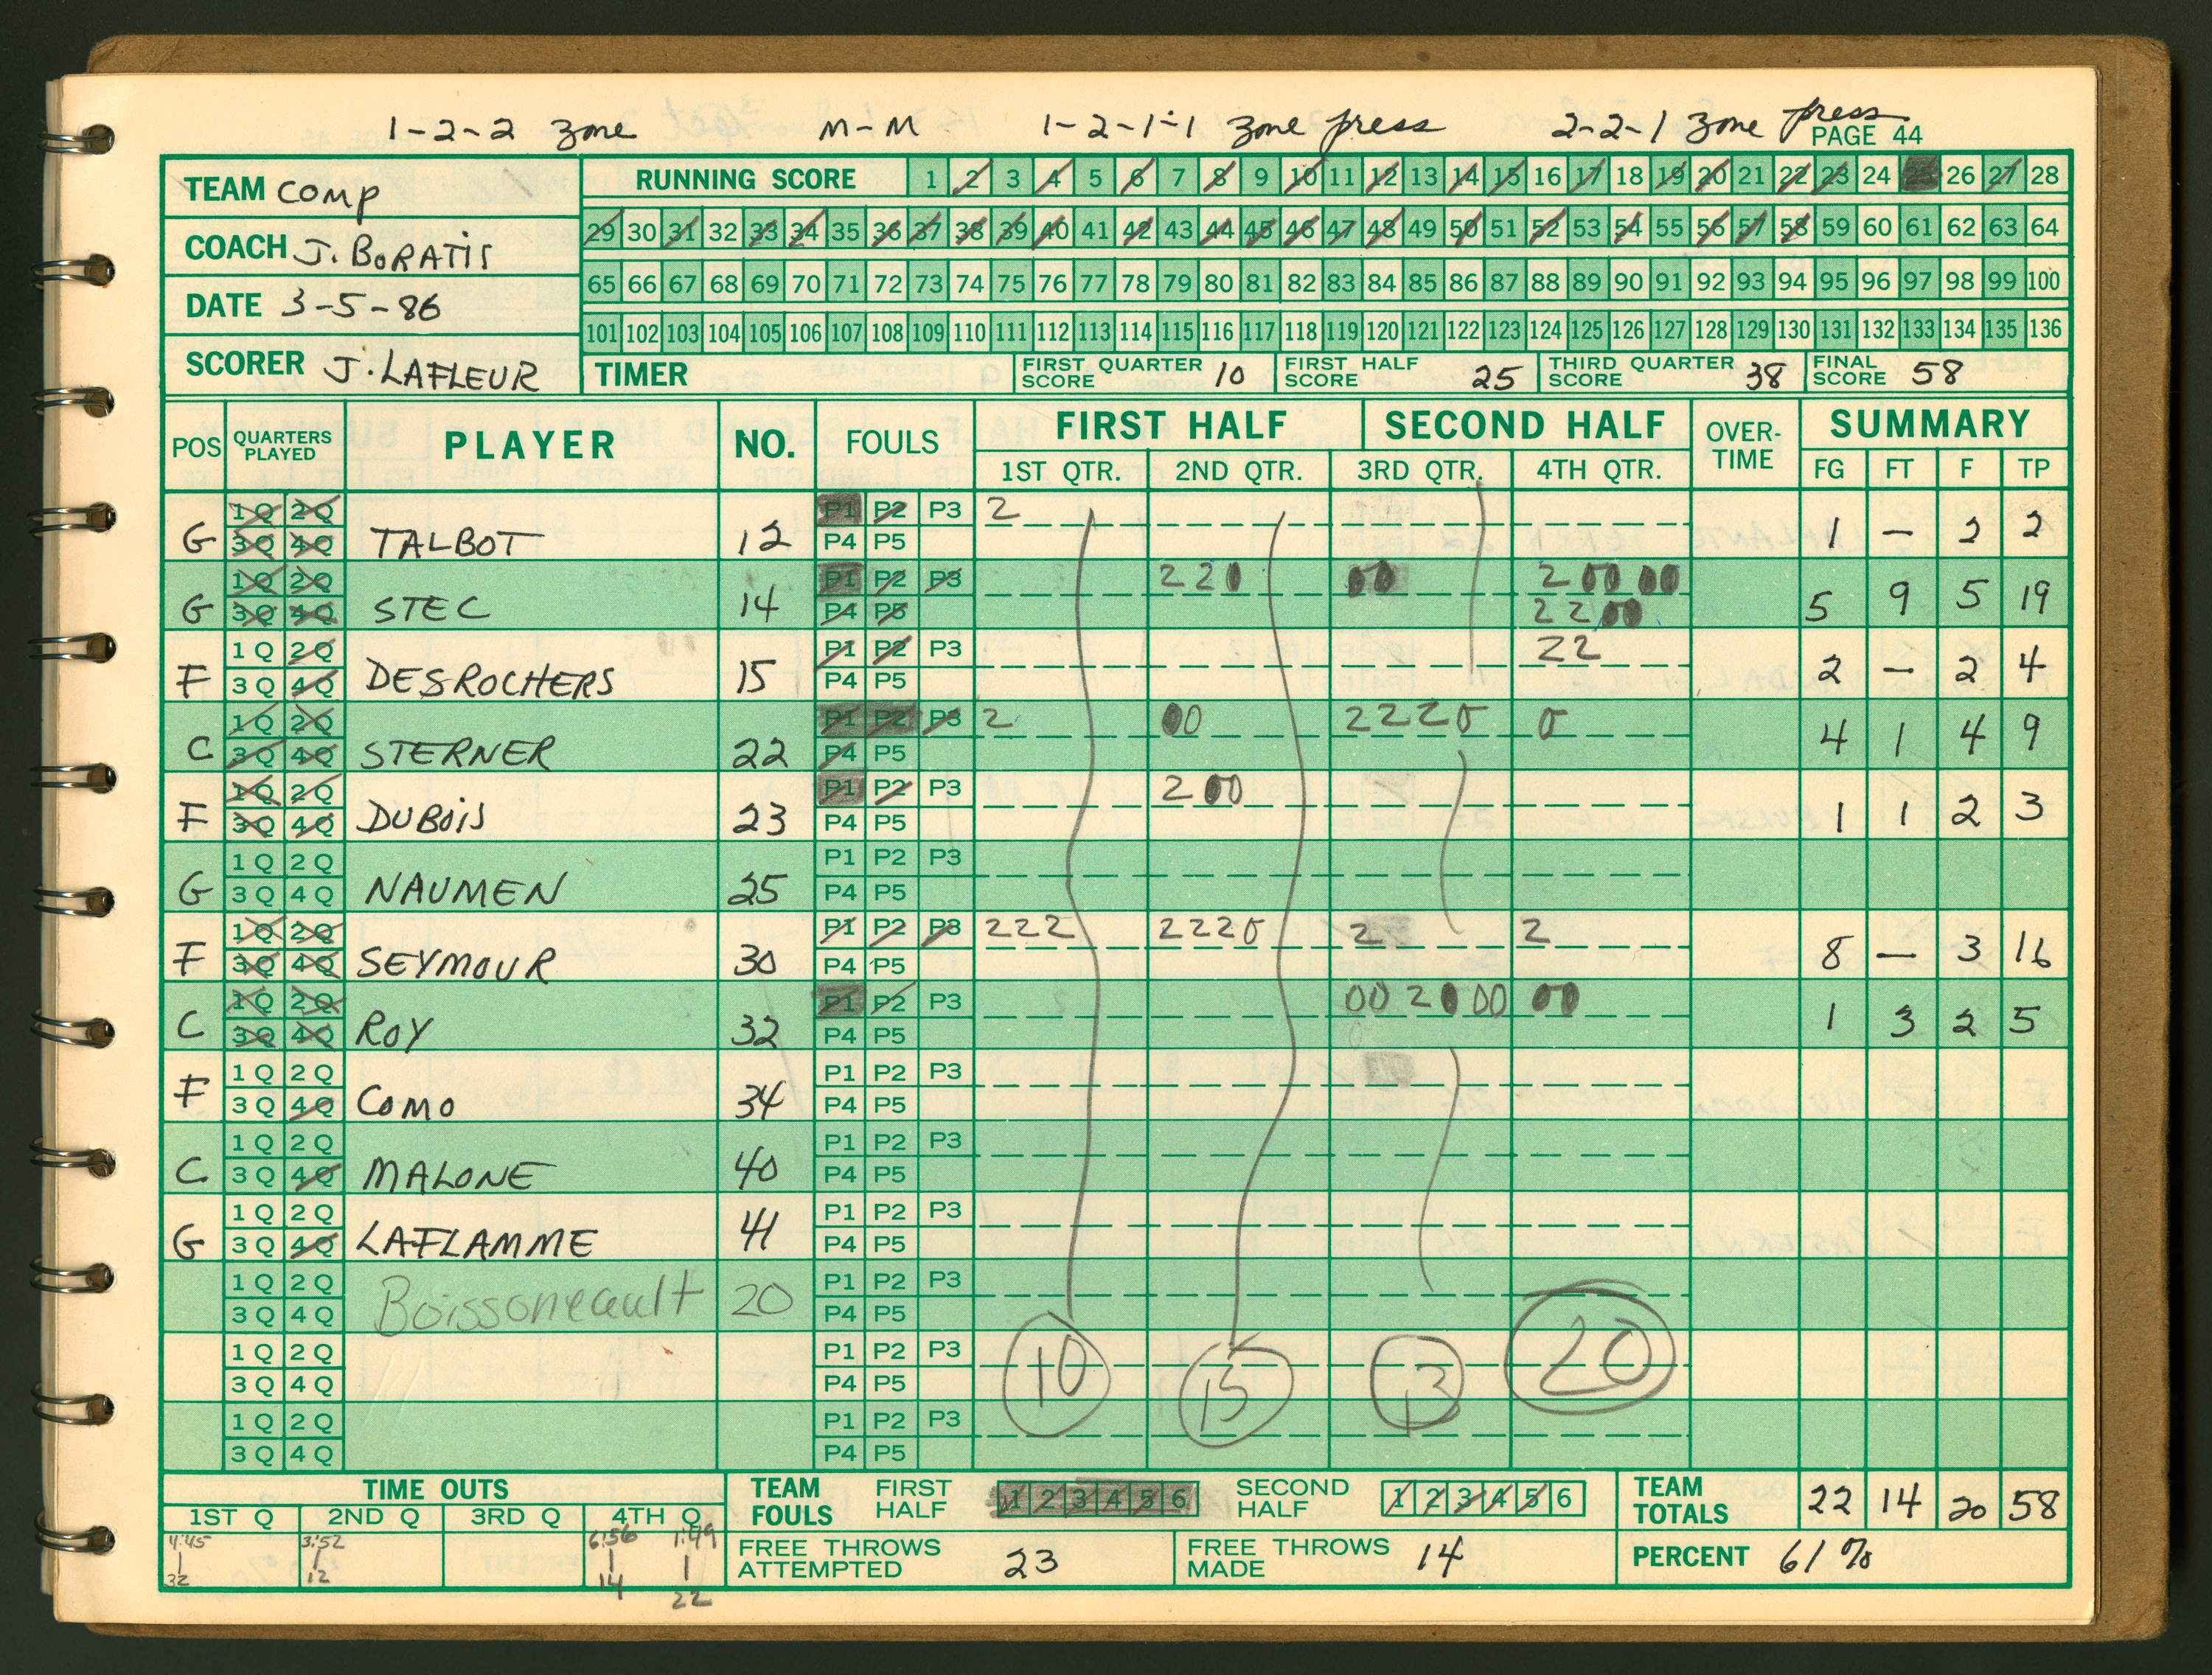 1-2-2 zone M-M 1-2-1-1 zone press 2-2-1 zone press
PAGE 44
TEAM COMP
COACH J. BORATIS
DATE 3-5-86
SCORER J. LAFLEUR
RUNNING SCORE 1 2 3 4 5 6 7 8 9 10 11 12 13 14 15 16 17 18 19 20 21 22 23 24 25 26 27 28
29 30 31 32 33 34 35 36 37 38 39 40 41 42 43 44 45 46 47 48 49 50 51 52 53 54 55 56 57 58 59 60 61 62 63 64
65 66 67 68 69 70 71 72 73 74 75 76 77 78 79 80 81 82 83 84 85 86 87 88 89 90 91 92 93 94 95 96 97 98 99 100
101 102 103 104 105 106 107 108 109 110 111 112 113 114 115 116 117 118 119 120 121 122 123 124 125 126 127 128 129 130 131 132 133 134 135 136
TIMER FIRST QUARTER SCORE 10 FIRST HALF SCORE 25 THIRD QUARTER SCORE 38 FINAL SCORE 58
POS QUARTERS PLAYED PLAYER NO. FOULS FIRST HALF SECOND HALF OVER-TIME SUMMARY
1ST QTR. 2ND QTR. 3RD QTR. 4TH QTR. FG FT F TP
1Q 2Q P1 P2 P3 2
G 3Q 4Q TALBOT 12 P4 P5 1 — 2 2
1Q 2Q P1 P2 P3 2 2 0 0 0 2 0 0 0 0
G 3Q 4Q STEC 14 P4 P5 2 2 0 0 5 9 5 19
1Q 2Q P1 P2 P3 2 2
F 3Q 4Q DESROCHERS 15 P4 P5 2 — 2 4
1Q 2Q P1 P2 P3 2 0 0 2 2 2 0 0
C 3Q 4Q STERNER 22 P4 P5 4 1 4 9
1Q 2Q P1 P2 P3 2 0 0
F 3Q 4Q DUBOIS 23 P4 P5 1 1 2 3
1Q 2Q P1 P2 P3
G 3Q 4Q NAUMEN 25 P4 P5
1Q 2Q P1 P2 P3 2 2 2 2 2 2 0 2 2
F 3Q 4Q SEYMOUR 30 P4 P5 8 — 3 16
1Q 2Q P1 P2 P3 0 0 2 0 0 0 0 0
C 3Q 4Q ROY 32 P4 P5 1 3 2 5
1Q 2Q P1 P2 P3
F 3Q 4Q COMO 34 P4 P5
1Q 2Q P1 P2 P3
C 3Q 4Q MALONE 40 P4 P5
1Q 2Q P1 P2 P3
G 3Q 4Q LAFLAMME 41 P4 P5
1Q 2Q P1 P2 P3
3Q 4Q Boissoneault 20 P4 P5
1Q 2Q P1 P2 P3
3Q 4Q P4 P5 10 15 13 20
1Q 2Q P1 P2 P3
3Q 4Q P4 P5
TIME OUTS
1ST Q 2ND Q 3RD Q 4TH Q
4:45 3:52 6:56 1:49
32 12 14 22
TEAM FOULS FIRST HALF 1 2 3 4 5 6 SECOND HALF 1 2 3 4 5 6
TEAM TOTALS 22 14 20 58
FREE THROWS ATTEMPTED 23 FREE THROWS MADE 14 PERCENT 61%